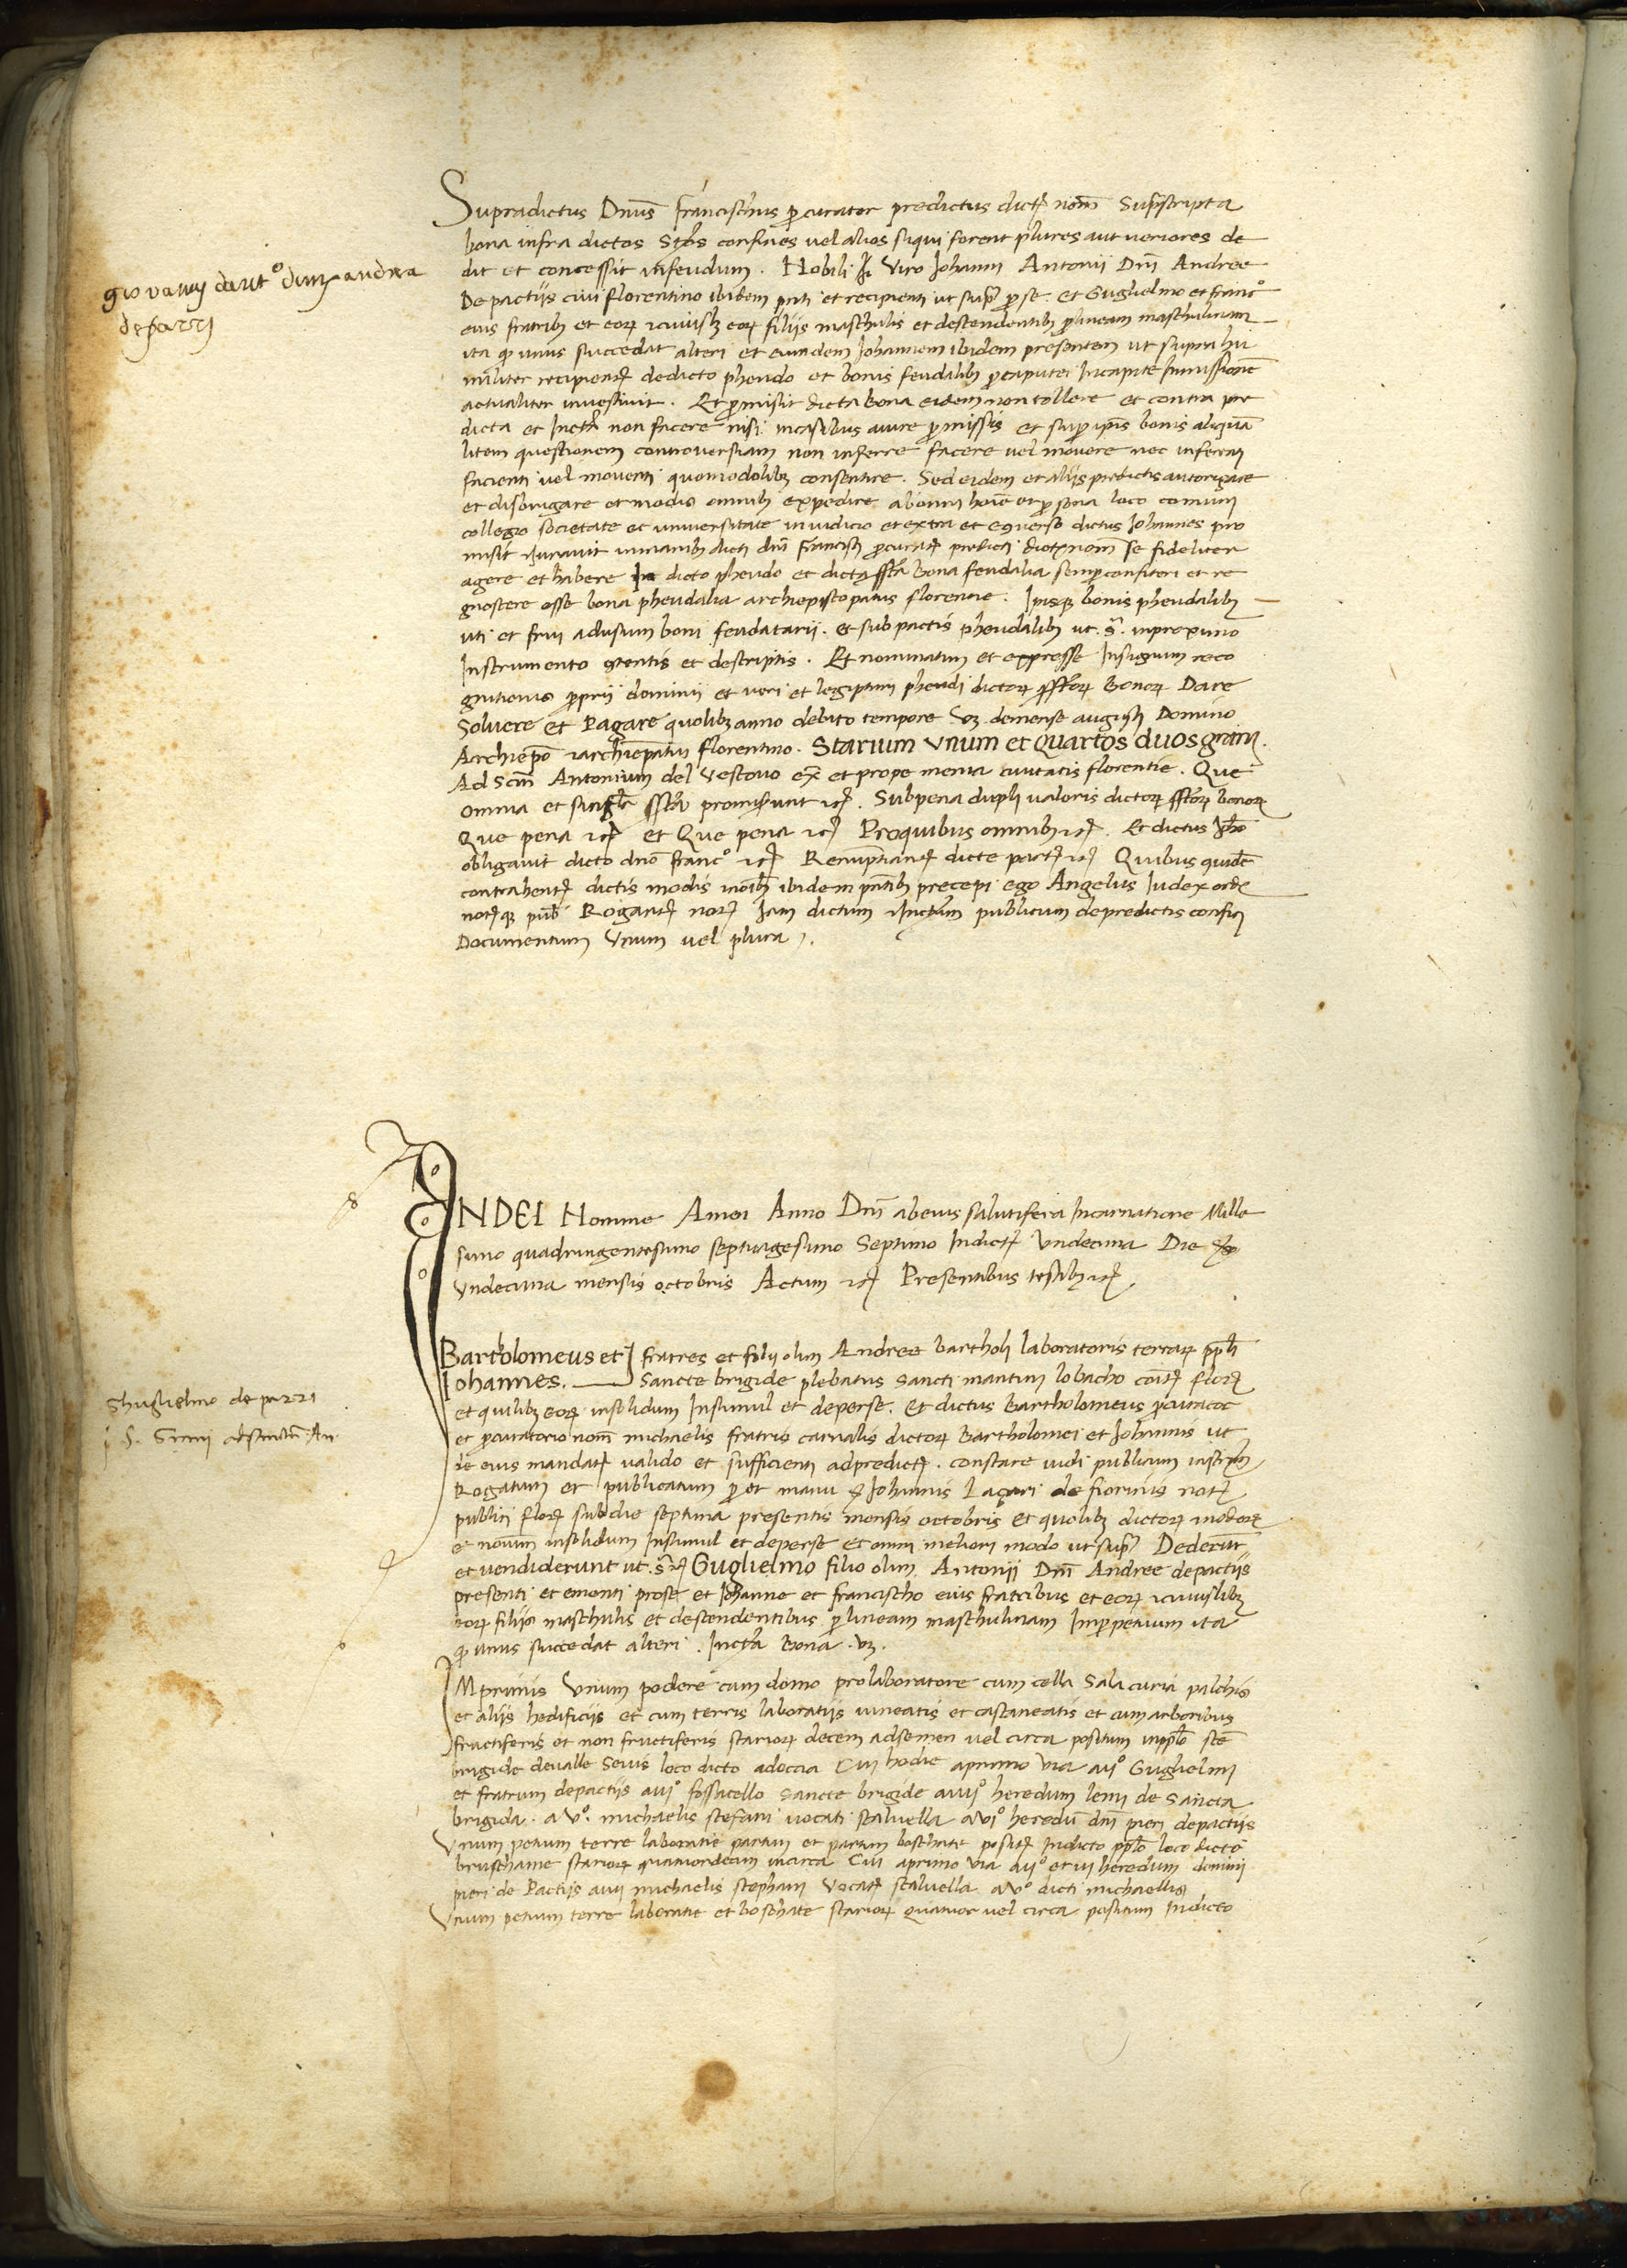 giovannj dant° dmess andrea
de pazzj
Supradictus Dnus Francischus procurator predictus dict nom Suprascripta
bona infra dictos Suos confines vel alios siqui forent plures aut veriores de
dit et concessit in feudum. Nobili Viro Johanni Antonii Dni Andree
De pactiis civi florentino ibidem pnti et recipienti ut supra pro se et Guglielmo et franc°
eius fratribus et eorum et cuiuslibet eorum filiis maschulis et descendentibus per lineam maschulinam
ita quod unus succedat alteri et eumdem Johannem ibidem presentem ut supra hu
militer recipient de dicto pheudo et bonis feudalibus per caputei in capite summissione
actualiter investivit. Et promisit dicta bona eidem non tollere et contra pre
dicta et Infra non facere nisi in casibus a iure promissis et super ipsis bonis aliquam
litem questionem controversiam non inferre facere vel movere nec inferenti
facienti vel moventi quomodolibet consentire. Sed eidem et aliis predictis autorizare
et disbrigare et modis omnibus expedire ab omni hoie et persona loco comuni
collegio societate et universitate in iudicio et extra et e converso dictus Johannes pro
misit et iuravit in manibus dicti dni Francisci procurat predicti dicto nom se fideliter
agere et habere In dicto pheudo et dicta ssta Bona feudalia semper confiteri et re
gnoscere esse bona pheudalia archiepiscopatus florentie. Ipisque bonis pheudalibus
uti et frui ad usum boni feudatarii. et sub pactis pheudalibus ut. s. in proximo
Instrumento contentis et descriptis. Et nominatim et expresse In signum reco
gnitionis proprii dominii et veri et legiptimi pheudi dictorum sstorum Bonorum Dare
Solvere et Pagare quolibet anno debito tempore vz de mense augusti Domino
Archiepo et archiepatui florentino. Starium Unum et Quartos duos grani.
Ad Scm Antonium del Vescovo extra et prope menia civitatis florentie. Que
omnia et singula ssta promiserunt etc. Sub pena dupli valoris dictorum sstorum bonorum
Que pena etc et Que pena etc Pro quibus omnibus etc. Et dictus Joho
obligavit dicto dno franc° etc Renumptiant dicte partes etc Quibus quidem
contrahent dictis modis nomibus ibidem pntibus precepi ego Angelus Iudex ord
notque publ Rogant not Iam dictum et Infrum publicum de predictis confici
Documentum Unum vel plura.
IN DEI Nomine Amen Anno Dni ab eius salutifera Incarnatione Mille
simo quadringentesimo septuagesimo Septimo Indict Undecima Die
Undecima mensis octobris Actum etc Presentibus testibus etc
Bartholomeus et fratres et filii olim Andree bartholi laboratoris terrarum ppli
Johannes. Sancte brigide plebatus sancti martini lobacho comit flor
Ghuglielmo de pazzi
et quilibet eorum insolidum Insimul et de per se. Et dictus Bartholomeus procurator
et procuratorio nom michaelis fratris carnalis dictorum Bartholomei et Johannis ut
de eius mandat valido et sufficienti ad predict. constare vidi publicum instrum
Rogatum et publicatum per et manu s Johannis Laçari de fiorinis not
publici flor sub die septima presentis mensis octobris et quolibet dictorum modorum
et nominum insolidum Insimul et de per se et omni meliori modo ut supra Dederunt
et vendiderunt ut. s. etc Guglielmo filio olim Antonii Dni Andree de pactiis
presenti et ementi pro se et Iohanne et francischo eius fratribus et eorum et cuiuslibet
eorum filiis maschulis et descendentibus per lineam maschulinam In perpetuum ita
quod unus succedat alteri. Infra Bona. vz.
IMprimis Unum podere cum domo pro laboratore cum cella Sala curia palchis
et aliis hedificiis et cum terris laboratiis vineatis et castaneatis et cum arboribus
fructiferis et non fructiferis stariorum decem ad semen vel circa positum in pplo ste
brigide de valle Sevis loco dicto adoccia Cui hodie a primo via a ii° Guglielmi
et fratrum de pactiis a iii° fossatello sancte brigide a iiii° heredum lemi de Sancta
brigida. a V°. michaelis stefani vocati scalvella a Vi° heredum dni pieri de pactiis
Unum petium terre laboratie partim et partim boschate posit In dicto pplo loco dicto
bruschame stariorum quatuordecim incirca Cui a primo via a ii° et iii heredum domini
pieri de Pactiis a iiii michaelis stephani Vocat scalvella a V° dicti michaellis
Unum petium terre laboratie et boschate stariorum quatuor vel circa positum In dicto